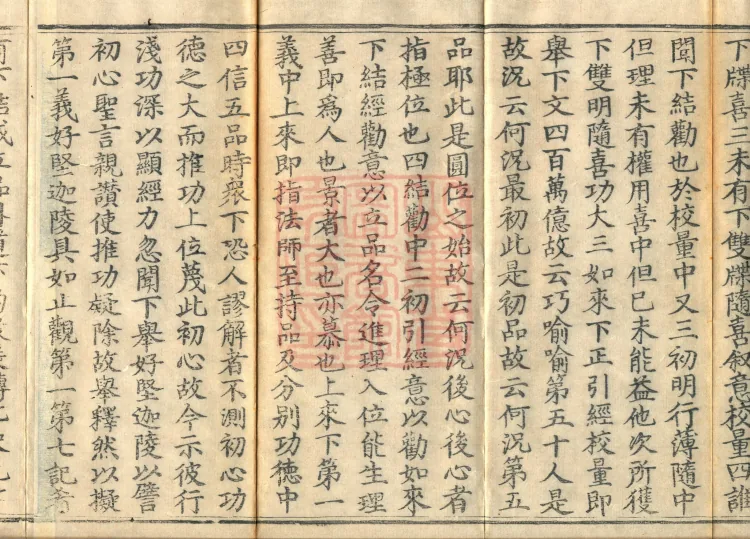 下牒喜三未有下雙牒隨喜叙意校量四誰
聞下結勸也於校量中又三初明行薄隨中
但理未有權用喜中但已未能益他次所獲
下雙明隨喜功大三如來下正引經校量即
舉下文四百萬億故云巧喻喻第五十人是
故況云何況最初此是初品故云何況第五
品耶此是圓位之始故云何況後心後心者
指極位也四結勸中二初引經意以勸如來
下結經勸意以立品名令進理入位能生理
善即為人也景者大也亦慕也上來下第一
義中上來即指法師至持品及分別功德中
四信五品時衆下恐人謬解者不測初心功
德之大而推功上位蔑此初心故今示彼行
淺功深以顯經力忽聞下舉好堅迦陵以譬
初心聖言親讚使推功疑除故舉釋然以擬
第一義好堅迦陵具如止觀第一第七記者